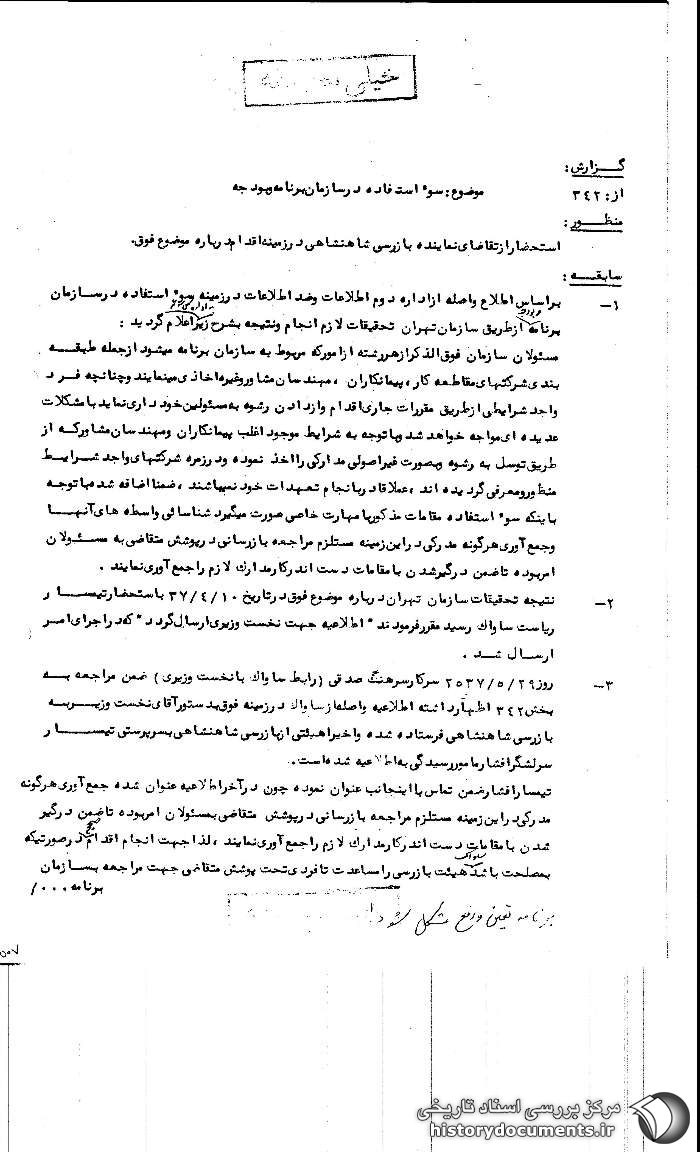 خیلی محرمانه
گزارش :
از : ۳۴۲ موضوع : سوء استفاده در سازمان برنامه و بودجه
منظور :
استحضار از تقاضای نماینده بازرسی شاهنشاهی در زمینه اقدام درباره موضوع فوق.
سابقه :
۱- براساس اطلاع واصله از اداره دوم اطلاعات و ضد اطلاعات در زمینه سوء استفاده در سازمان
برنامه از طریق سازمان تهران تحقیقات لازم انجام و نتیجه بشرح زیر اعلام گردید :
مسئولان سازمان فوق الذکر از هر رشته از امور که مربوط به سازمان برنامه میشود از جمله طبقه
بندی شرکتهای مقاطعه کار ، پیمانکاران ، مهندسان مشاور و غیره اخاذی مینمایند و چنانچه فرد
واجد شرایطی از طریق مقررات جاری اقدام و از دادن رشوه به مسئولین خود داری نماید با مشکلات
عدیده ای مواجه خواهد شد و با توجه به شرایط موجود اغلب پیمانکاران و مهندسان مشاور که از
طریق توسل به رشوه و بصورت غیر اصولی مدارکی را اخذ نموده و در زمره شرکتهای واجد شرایط
منظور و معرفی گردیده اند ، عملا قادر بانجام تعهدات خود نمیباشند ، ضمنا اضافه شده با توجه
باینکه سوء استفاده مقامات مذکور با مهارت خاصی صورت میگیرد شناسائی واسطه های آنها
و جمع آوری هرگونه مدرکی در این زمینه مستلزم مراجعه بازرسانی در پوشش متقاضی به مسئولان
امر بوده تا ضمن درگیر شدن با مقامات دست اندر کار مدارک لازم را جمع آوری نمایند .
۲- نتیجه تحقیقات سازمان تهران درباره موضوع فوق در تاریخ ۳۷/۴/۱۰ باستحضار تیمسار
ریاست ساواک رسید مقرر فرمودند " اطلاعیه جهت نخست وزیری ارسال گردد " که در اجرای امر
ارسال شد .
۳- روز ۲۵۳۷/۵/۲۹ سرکار سرهنگ صدقی (رابط ساواک با نخست وزیری) ضمن مراجعه به
بخش ۳۴۲ اظهار داشته اطلاعیه واصله از ساواک در زمینه فوق بدستور آقای نخست وزیر به
بازرسی شاهنشاهی فرستاده شده و اخیرا هیئتی از بازرسی شاهنشاهی بسرپرستی تیمسار
سرلشگر افشار مامور رسیدگی به اطلاعیه شده است .
تیمسار افشار ضمن تماس با اینجانب عنوان نموده چون در آخر اطلاعیه عنوان شده جمع آوری هرگونه
مدرکی در این زمینه مستلزم مراجعه بازرسانی در پوشش متقاضی بمسئولان امر بوده تا ضمن درگیر
شدن با مقامات دست اندر کار مدارک لازم را جمع آوری نمایند ، لذا جهت انجام اقدام صحیح در صورتیکه
بمصلحت باشد ساواک هیئت بازرسی را مساعدت تا فردی تحت پوشش متقاضی جهت مراجعه بسازمان
برنامه ۰۰۰/
برنامه تعیین و رفع مشکل شود
مرکز بررسی اسناد تاریخی
historydocuments.ir